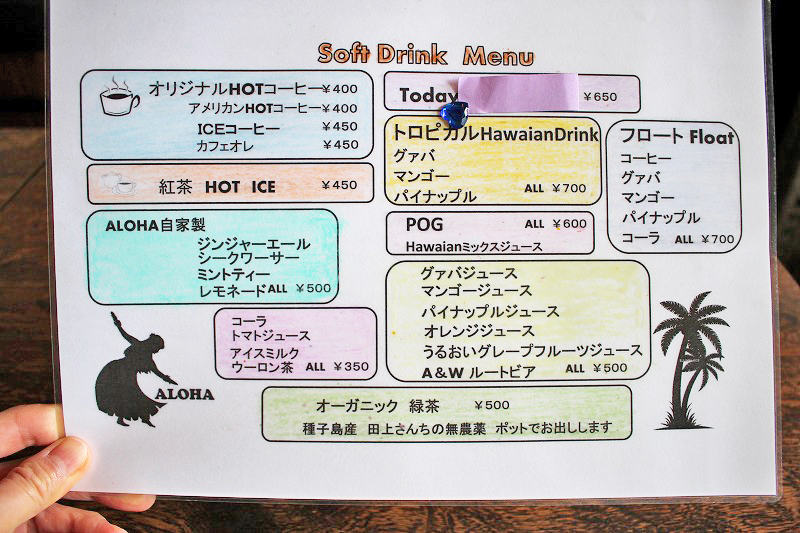 Soft Drink Menu
オリジナルHOTコーヒー ¥400
アメリカンHOTコーヒー ¥400
ICEコーヒー ¥450
カフェオレ ¥450
紅茶 HOT ICE ¥450
ALOHA自家製
ジンジャーエール
シークワーサー
ミントティー
レモネード ALL ¥500
コーラ
トマトジュース
アイスミルク
ウーロン茶 ALL ¥350
ALOHA
Today ¥650
トロピカルHawaianDrink
グァバ
マンゴー
パイナップル ALL ¥700
フロート Float
コーヒー
グァバ
マンゴー
パイナップル
コーラ ALL ¥700
POG ALL ¥600
Hawaianミックスジュース
グァバジュース
マンゴージュース
パイナップルジュース
オレンジジュース
うるおいグレープフルーツジュース
A&W ルートビア ALL ¥500
オーガニック 緑茶 ¥500
種子島産 田上さんちの無農薬 ポットでお出しします